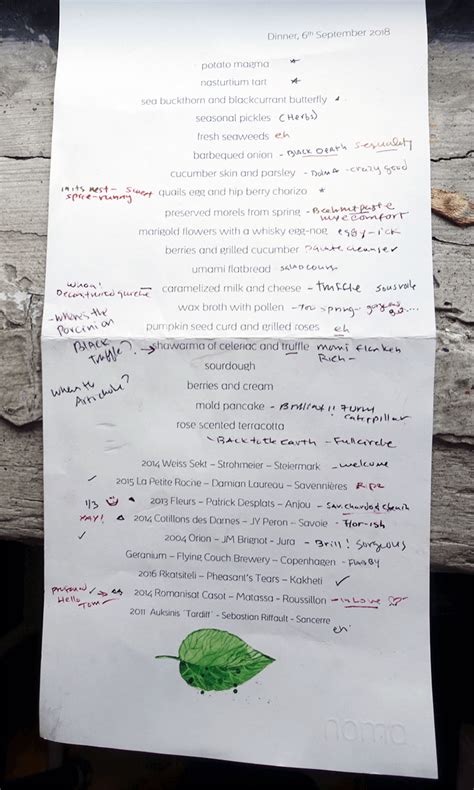 Dinner, 6th September 2018
potato magma *
nasturtium tart *
sea buckthorn and blackcurrant butterfly
seasonal pickles (Herbs)
fresh seaweeds eh
barbequed onion - BLACK DEATH Sexuality
cucumber skin and parsley - crazy good
in its nest - sweet
spice-runny quails egg and hip berry chorizo *
preserved morels from spring - comfort
marigold flowers with a whisky egg-nog eggy-ick
berries and grilled cucumber cleanser
umami flatbread salad course
whoa!
Deconstructed quiche caramelized milk and cheese - truffle sousvale
wax broth with pollen - too spring-
- Where's the
Porcini on
pumpkin seed curd and grilled roses eh
BLACK
Truffle? shawarma of celeriac and truffle momi flanken
Rich -
sourdough
where the
Artichoke? berries and cream
mold pancake - Brilliant!! Furry
caterpillar
rose scented terracotta
- Back to the earth - Full circle
2014 Weiss Sekt – Strohmeier – Steiermark - welcome
✓ 2015 La Petite Roche – Damian Laureau – Savennières Ripe
1/3 2013 Fleurs – Patrick Desplats – Anjou - Sav. chardo & chenin
YAY! 2014 Cotillons des Dames – JY Peron – Savoie - Flor-ish
✓ 2004 Orion – JM Brignot - Jura - Brill! Gorgeous
Geranium – Flying Couch Brewery – Copenhagen - FLABBY
2016 Rkatsiteli – Pheasant's Tears – Kakheti ✓
profound
Hello
Tom 2014 Romanisat Casot – Matassa - Roussillon - in Love
2011 Auksinis 'Tardiff' - Sebastian Riffault - Sancerre
eh
noma